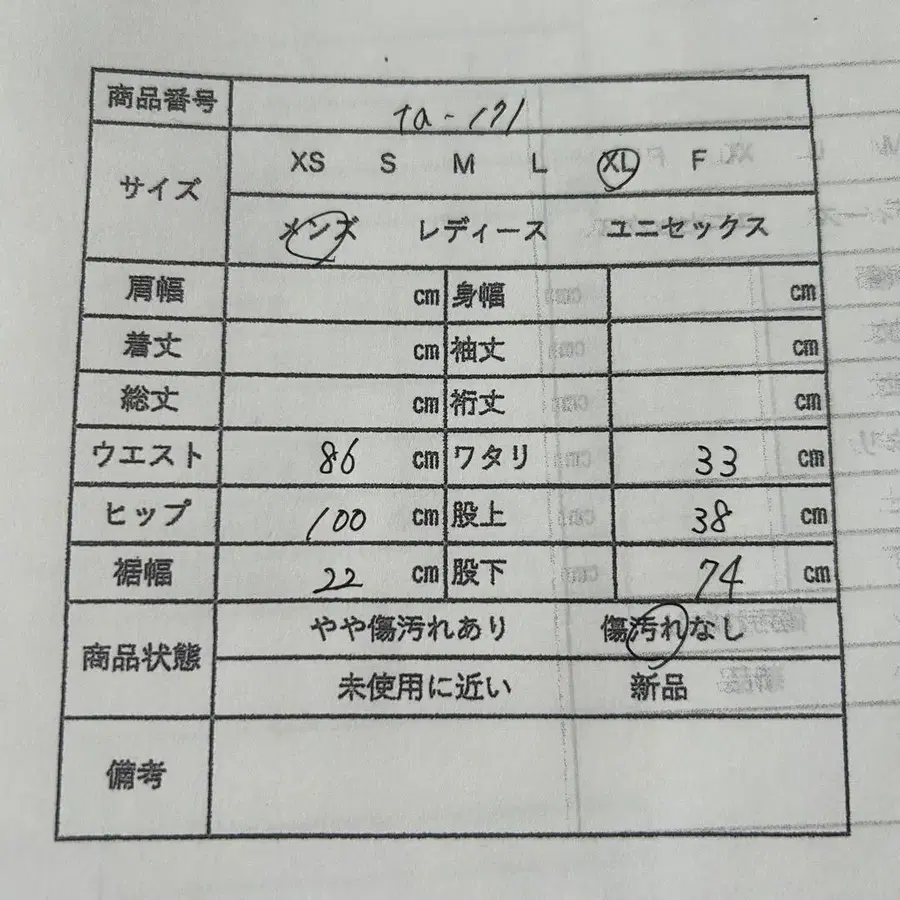 商品番号 ta-171
サイズ XS S M L XL F
メンズ レディース ユニセックス
肩幅 cm 身幅 cm
着丈 cm 袖丈 cm
総丈 cm 裄丈 cm
ウエスト 86 cm ワタリ 33 cm
ヒップ 100 cm 股上 38 cm
裾幅 22 cm 股下 74 cm
商品状態 やや傷汚れあり 傷汚れなし
未使用に近い 新品
備考